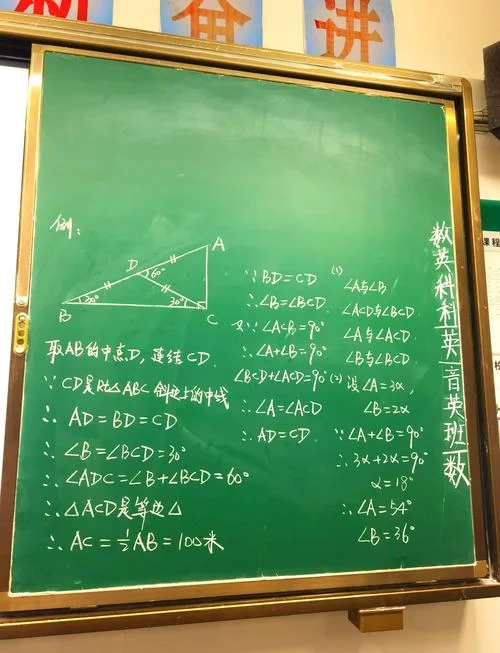 新 奋 进
例：
A
D
60°
B
30°
30°
C
取AB的中点D，连结CD.
∵ CD是Rt△ABC 斜边上的中线
∴ AD=BD=CD
∴ ∠B=∠BCD=30°
∴ ∠ADC=∠B+∠BCD=60°
∴ △ACD是等边△
∴ AC=½AB=100米
∵ BD=CD
∴ ∠B=∠BCD
又∵ ∠ACB=90°
∴ ∠A+∠B=90°
∠BCD+∠ACD=90°
∴ ∠A=∠ACD
∴ AD=CD.
(1)
∠A与∠B
∠ACD与∠BCD
∠A与∠ACD
∠B与∠BCD
(2) 设∠A=3α,
∠B=2α
∵ ∠A+∠B=90°
∴ 3α+2α=90°
α=18°
∴ ∠A=54°
∠B=36°
数英科科英音英班数
课程